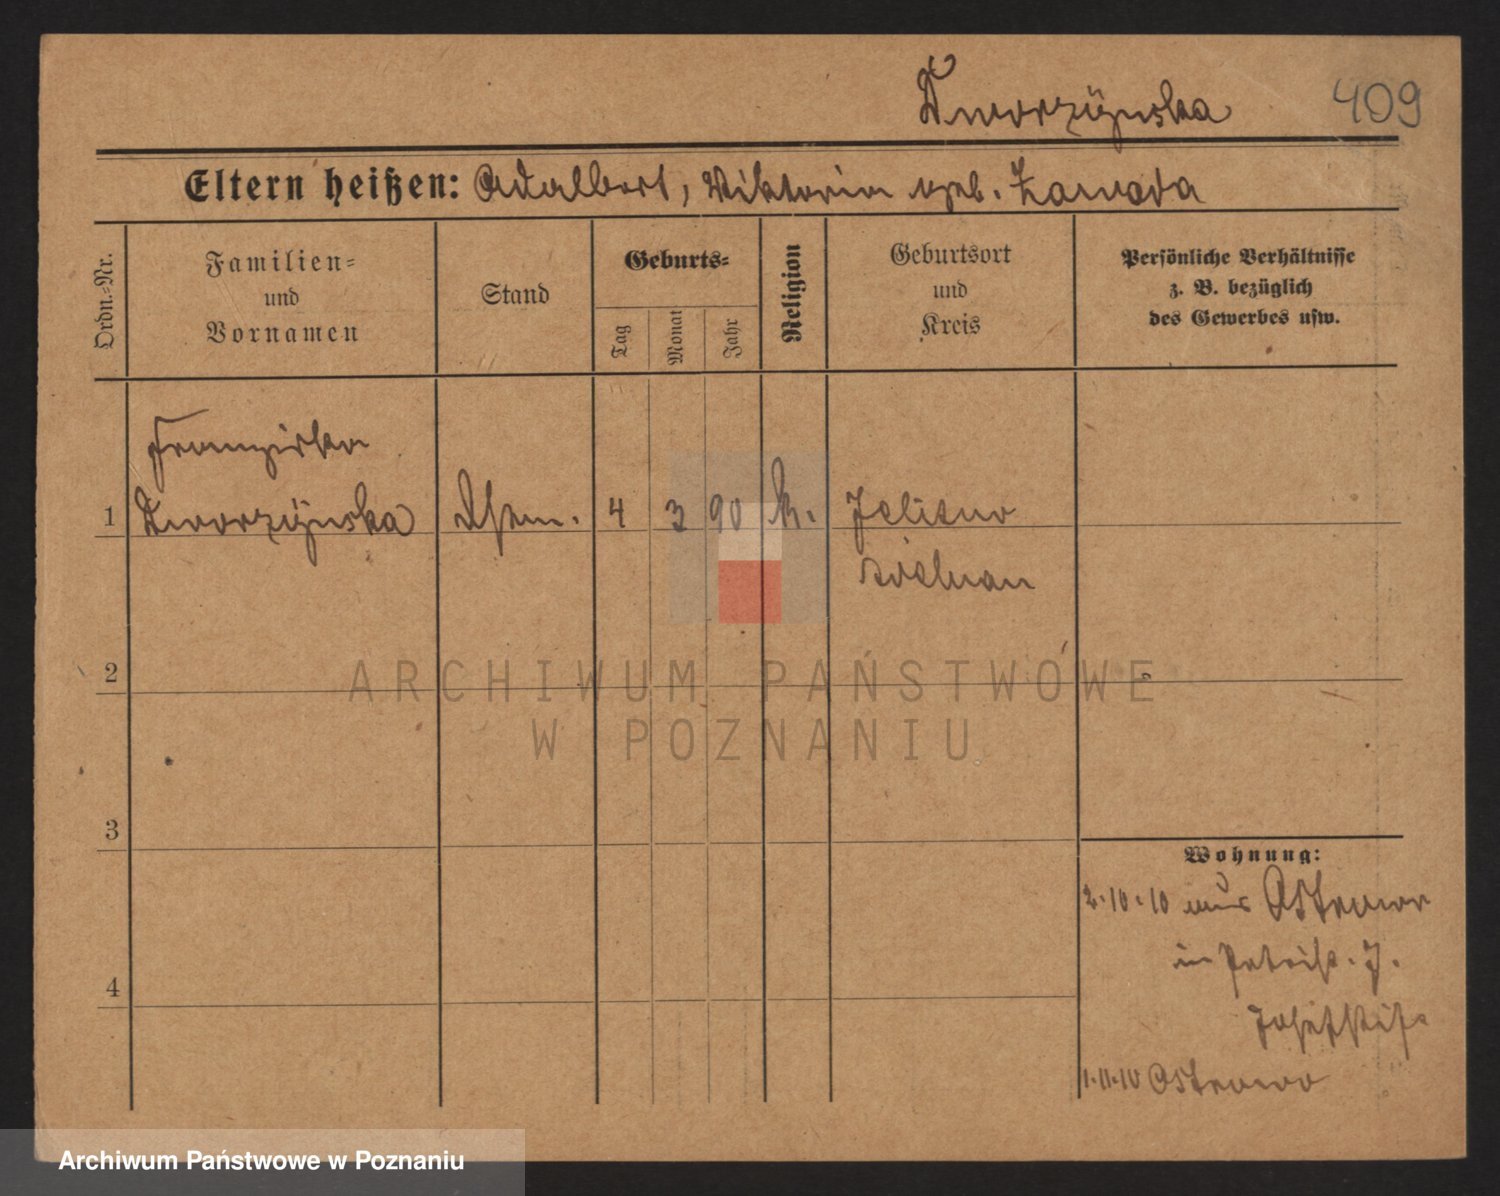 Dworzÿnska
409
Eltern heißen: Adalbert, Viktoria geb. Zawada
Ordn.-Nr.
Familien-
und
Vornamen
Stand
Geburts-
Tag
Monat
Jahr
Religion
Geburtsort
und
Kreis
Persönliche Verhältnisse
z. B. bezüglich
des Gewerbes usw.
Franziska
1 Dworzÿnska 4 3 90 k. Jelitno
2
3
4
Wohnung:
2.10.10 aus Ostrowo
in
Josefstift
1.11.10 Ostrowo
ARCHIWUM PAŃSTWOWE
W POZNANIU
Archiwum Państwowe w Poznaniu